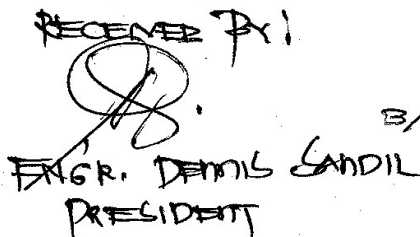 RECEIVED BY:
ENGR. DENNIS SANDIL
PRESIDENT